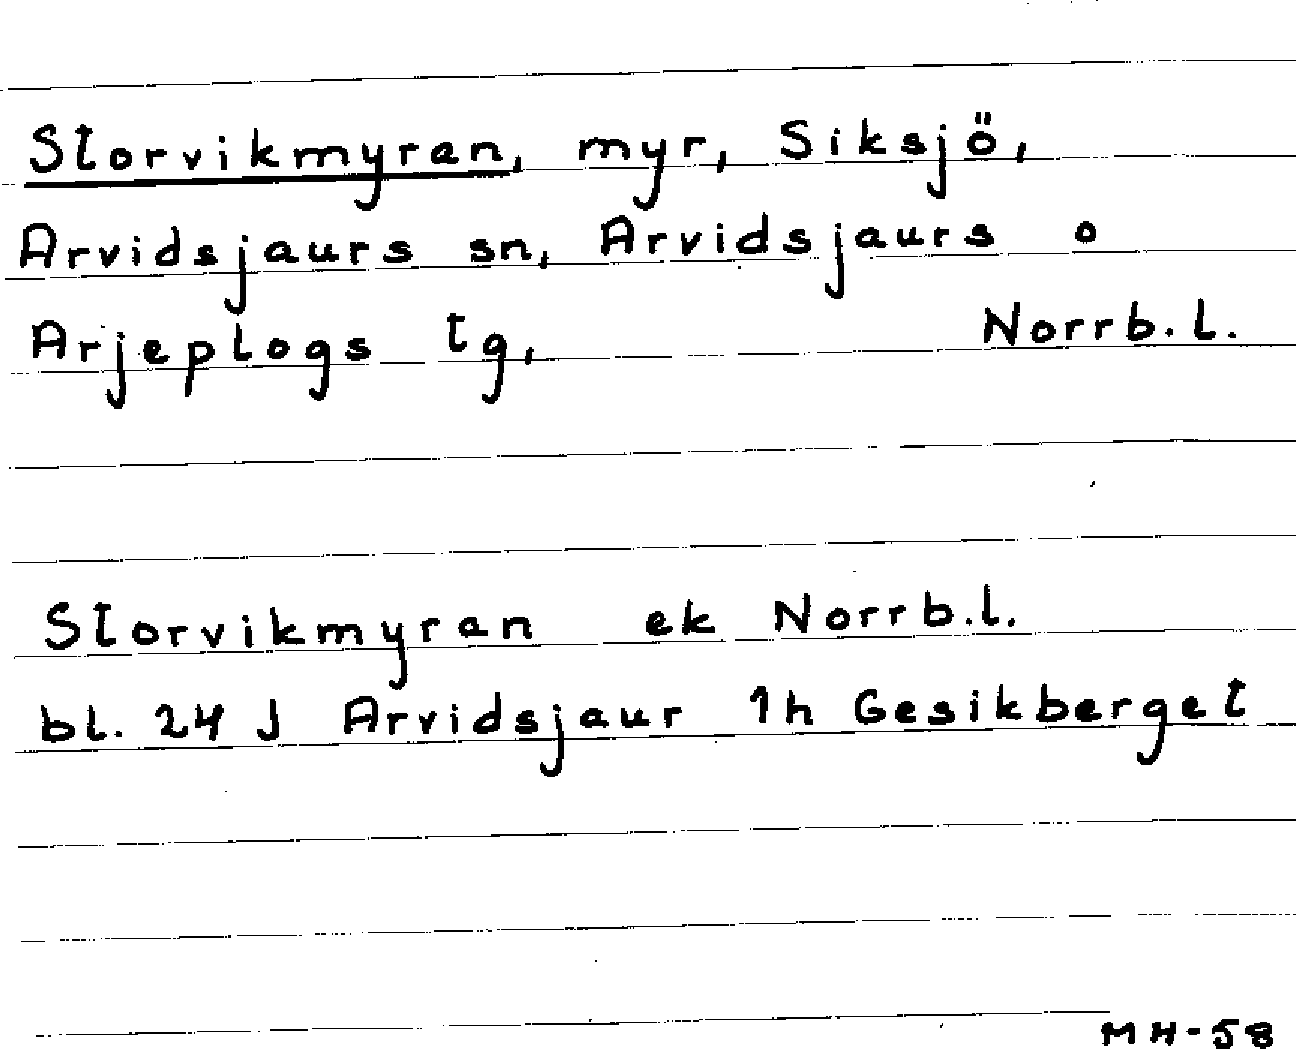 Storvikmyran, myr, Siksjö,
Arvidsjaurs sn, Arvidsjaurs o
Arjeplogs tg, Norrb.l.
Storvikmyran ek Norrb.l.
bl. 24 J Arvidsjaur 1h Gesikberget
MH-58